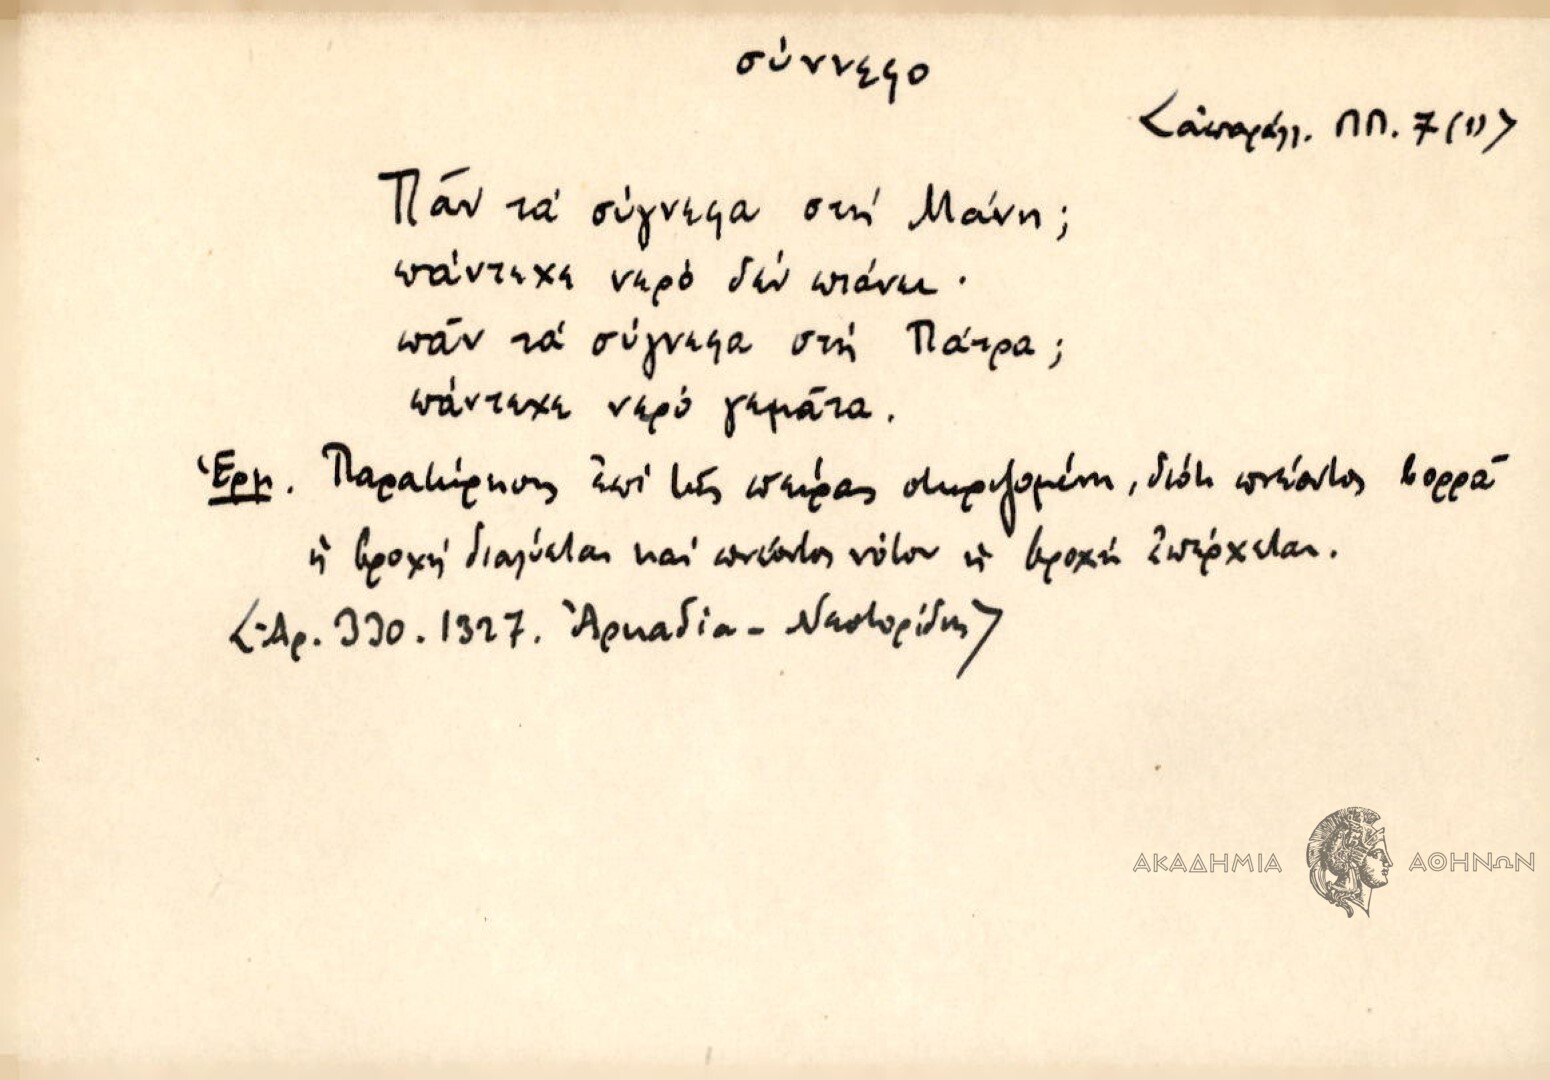 σύννεφο
<ἀπαράλλ. ΠΠ. 7(1)>
Πᾶν τά σύγνεφα στή Μάνη;
πάντεχε νερό δέν πιάνει·
πᾶν τά σύγνεφα στή Πάτρα;
πάντεχε νερό γεμᾶτα.
Ἑρμ. Παρατήρησις ἐπί τῆς πείρας στηριζομένη, διότι πνέοντος βορρᾶ
ἡ βροχή διαλύεται καί πνέοντος νότου ἡ βροχή ἐπέρχεται.
<Ἀρ. 330. 1327. Ἀρκαδία - Νεστορίδης>
ΑΚΑΔΗΜΙΑ ΑΘΗΝΩΝ